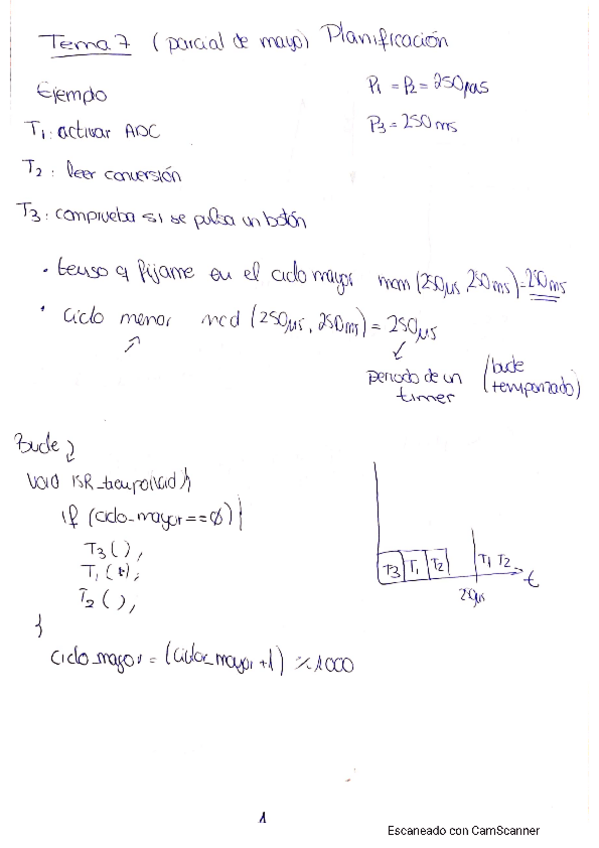 Tema 7 (parcial de mayo) Planificación
Ejemplo
P1 = P2 = 250µs
P3 = 250 ms
T1: activar ADC
T2: leer conversión
T3: comprueba si se pulsa un botón
• tenso q fijame en el ciclo mayor mcm (250µs, 250ms) = 250ms
• Ciclo menor mcd (250µs, 250ms) = 250µs
periodo de un timer
(bucle temporizado)
Bucle
void ISR_tiempo(void){
if (ciclo_mayor==0){
T3();
T1();
T2();
}
ciclo_mayor = (ciclo_mayor+1) % 1000
T3 T1 T2 T1 T2 t
250µs
1
Escaneado con CamScanner